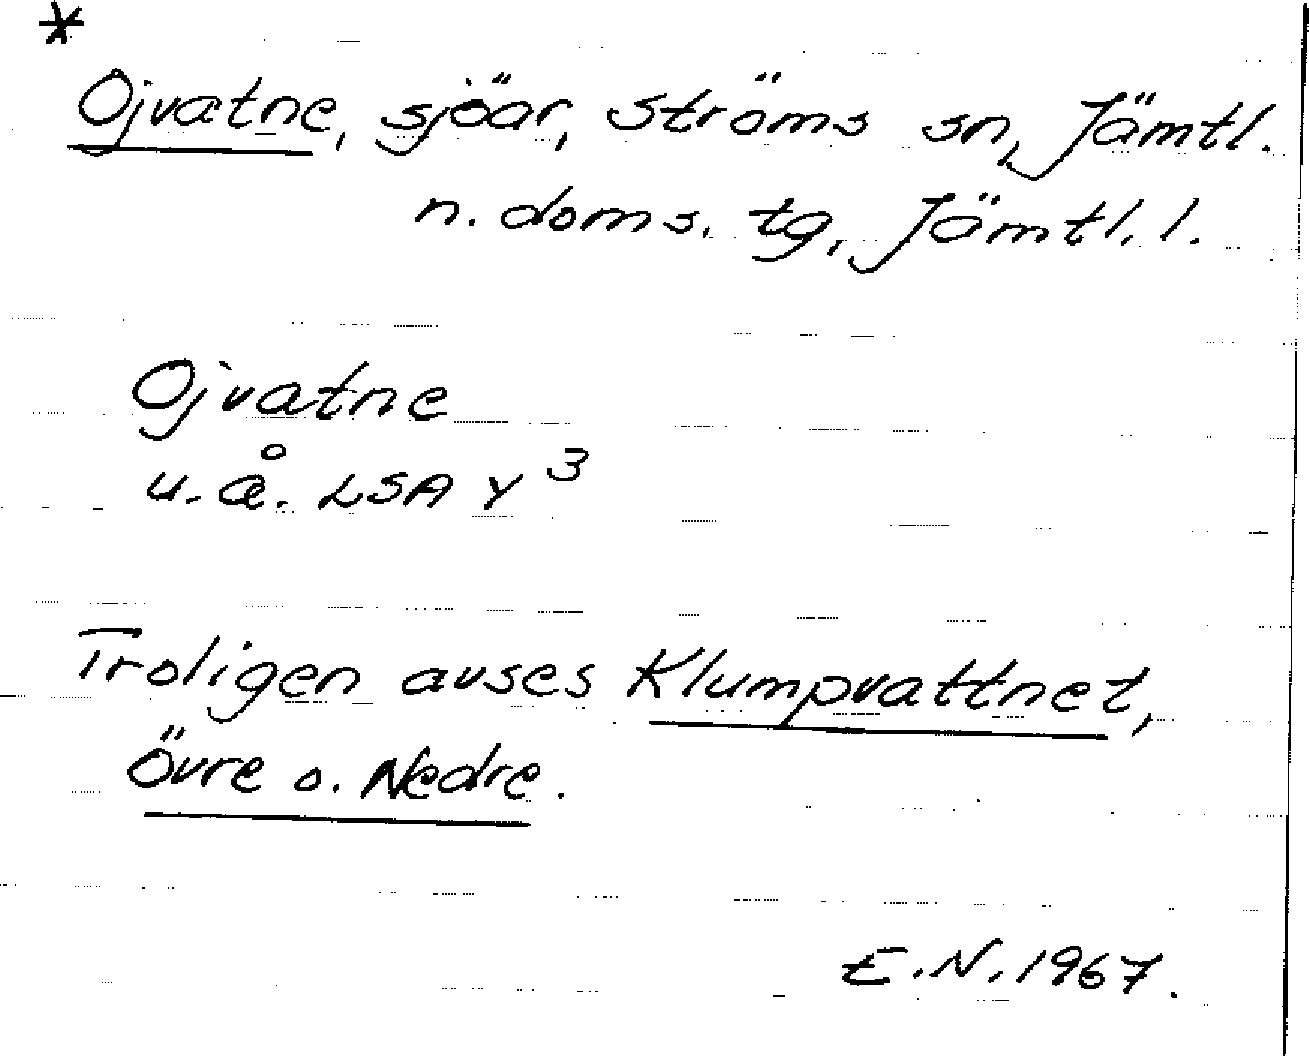 *
Ojvatne, sjöar, Ströms sn, Jämtl.
n. doms. tg, Jämtl. l.
Ojvatne
u. å. LSA Y 3
Troligen avses Klumpvattnet,
Övre o. Nedre.
E.N. 1967.